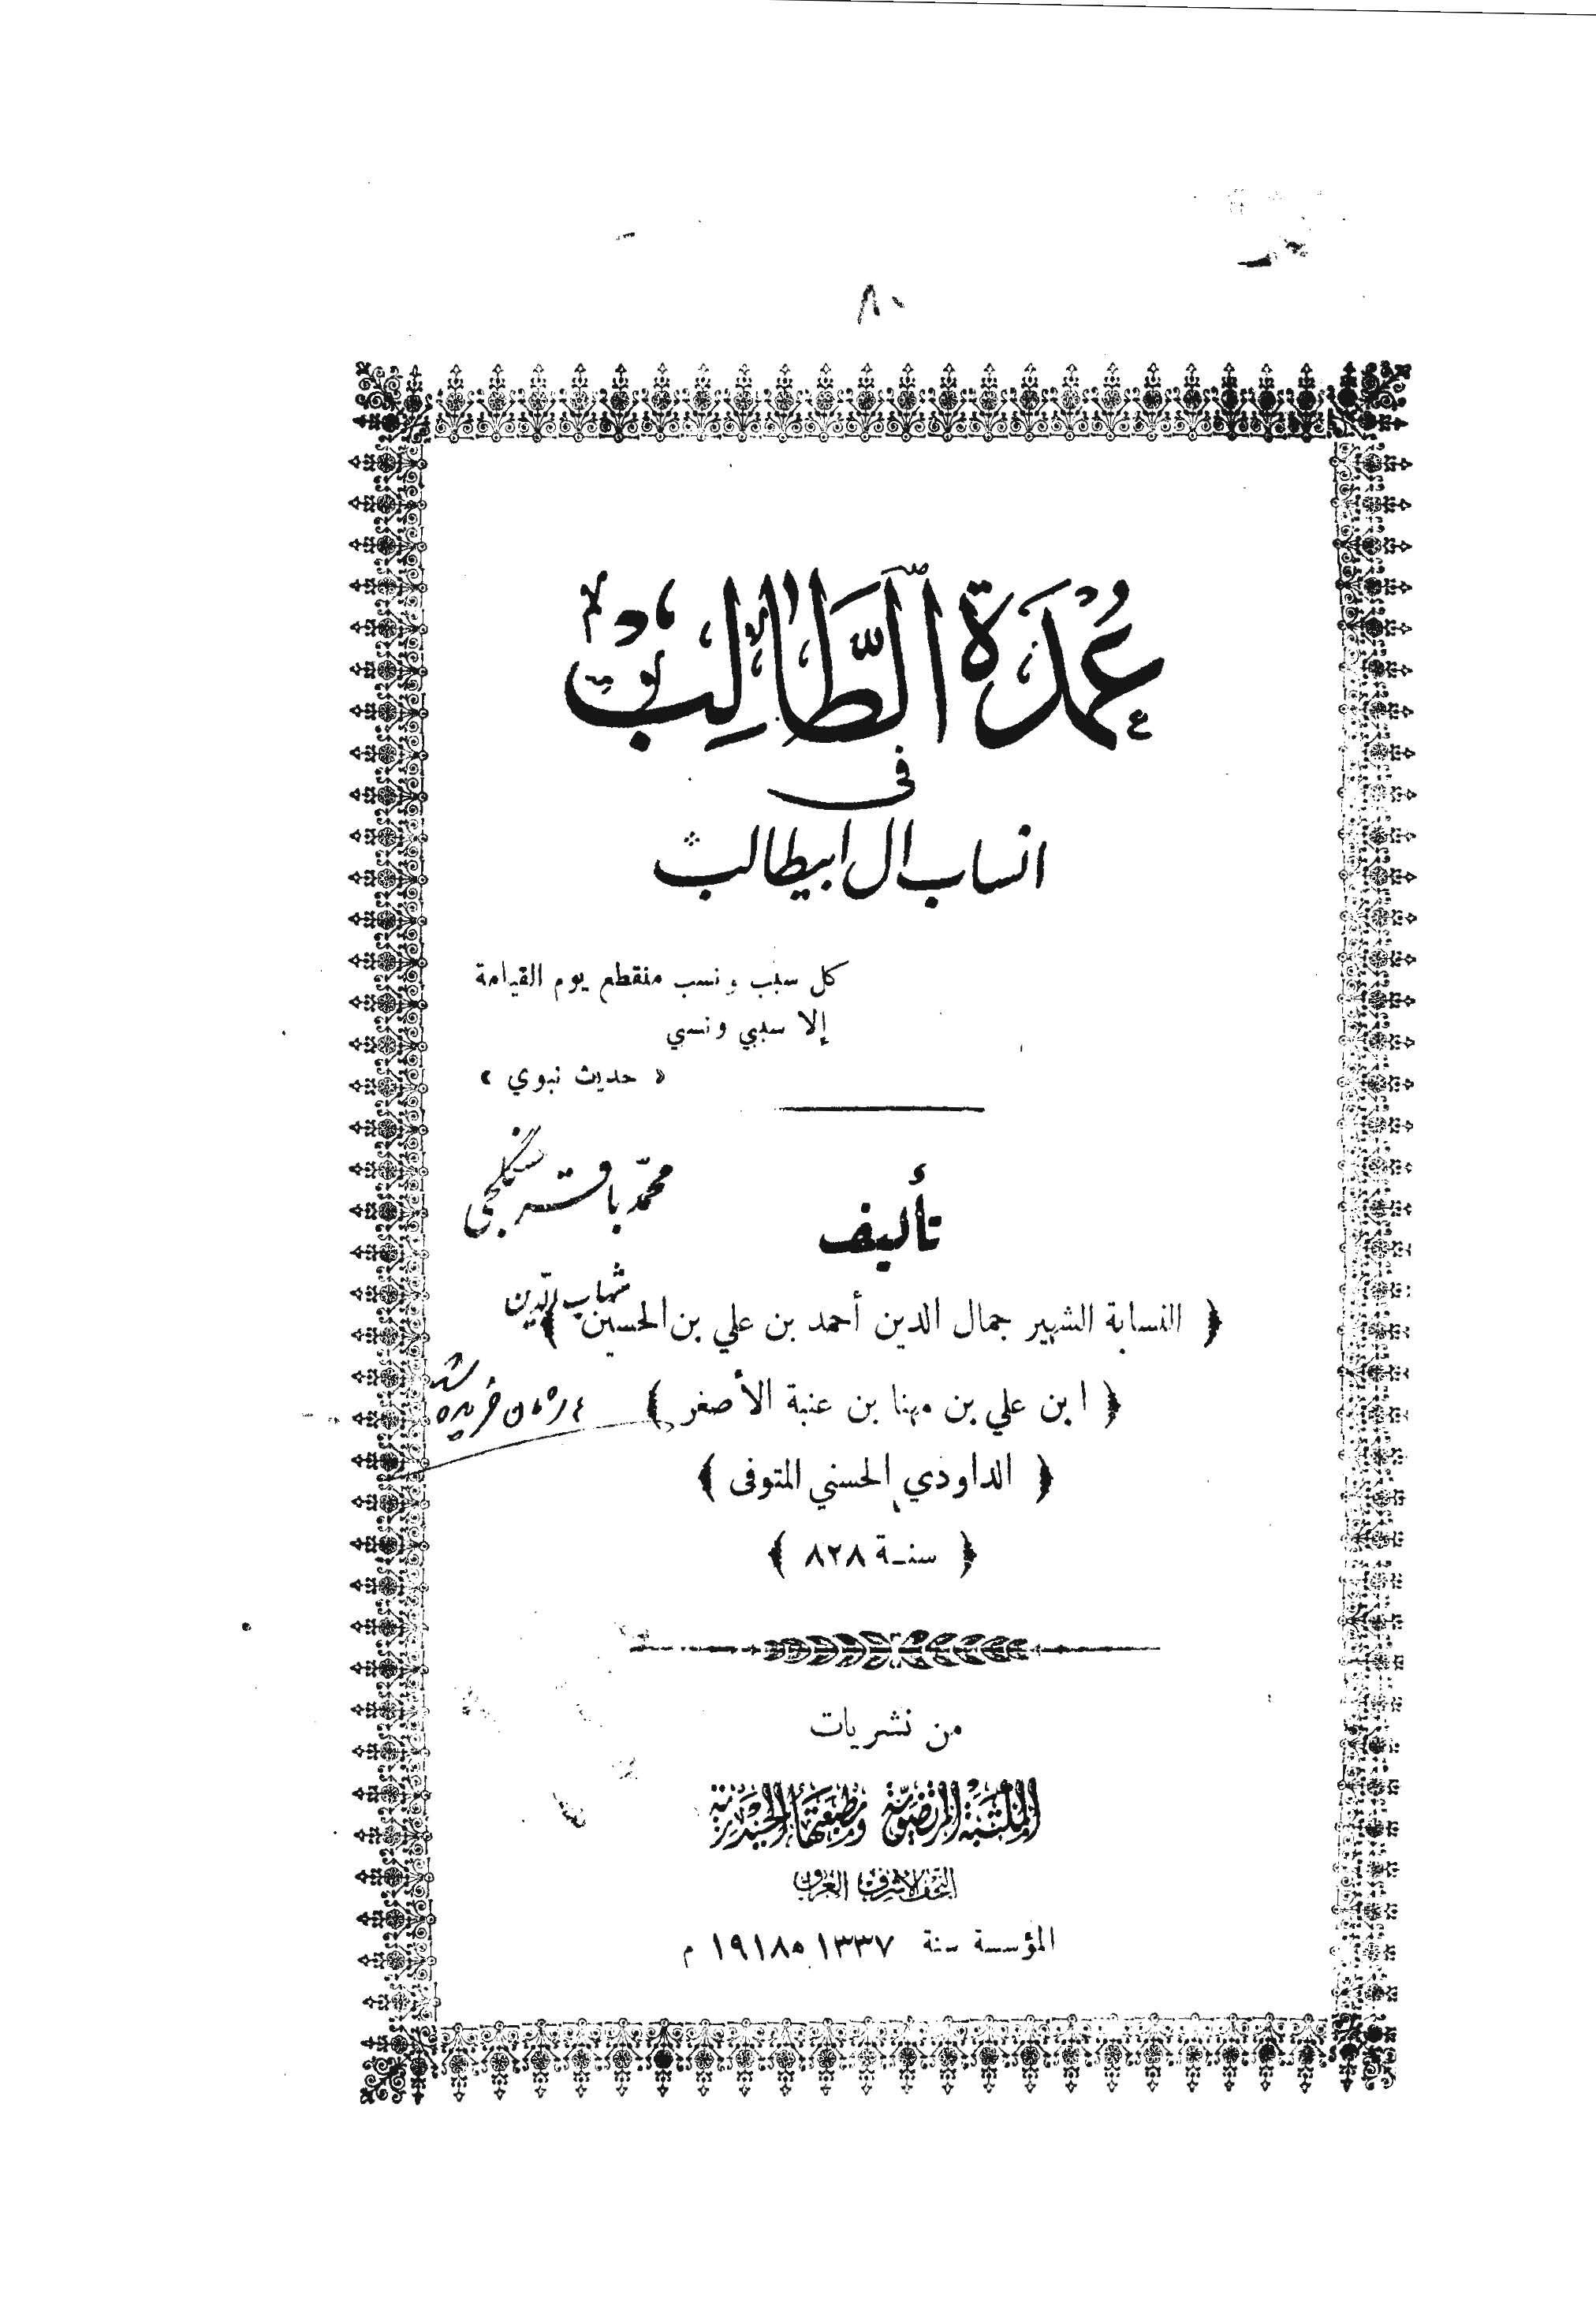 ٨٠
عُمدَة الطَّالِب
في
انساب ال ابيطالب
كل سبب ونسب منقطع يوم القيامة
إلا سببي ونسبي
« حديث نبوي »
محمّد باقر سنگلجی
تأليف
شهاب الدّين
﴿ النسابة الشهير جمال الدين أحمد بن علي بن الحسين ﴾
﴿ ابن علي بن مهنا بن عنبة الأصغر ﴾
خريده شد
﴿ الداودي الحسني المتوفى ﴾
﴿ سنة ٨٢٨ ﴾
من نشريات
المكتبة المرتضوية ومطبعتها الحيدرية
النجف الاشرف العراق
المؤسسة سنة ١٣٣٧ ه ١٩١٨ م